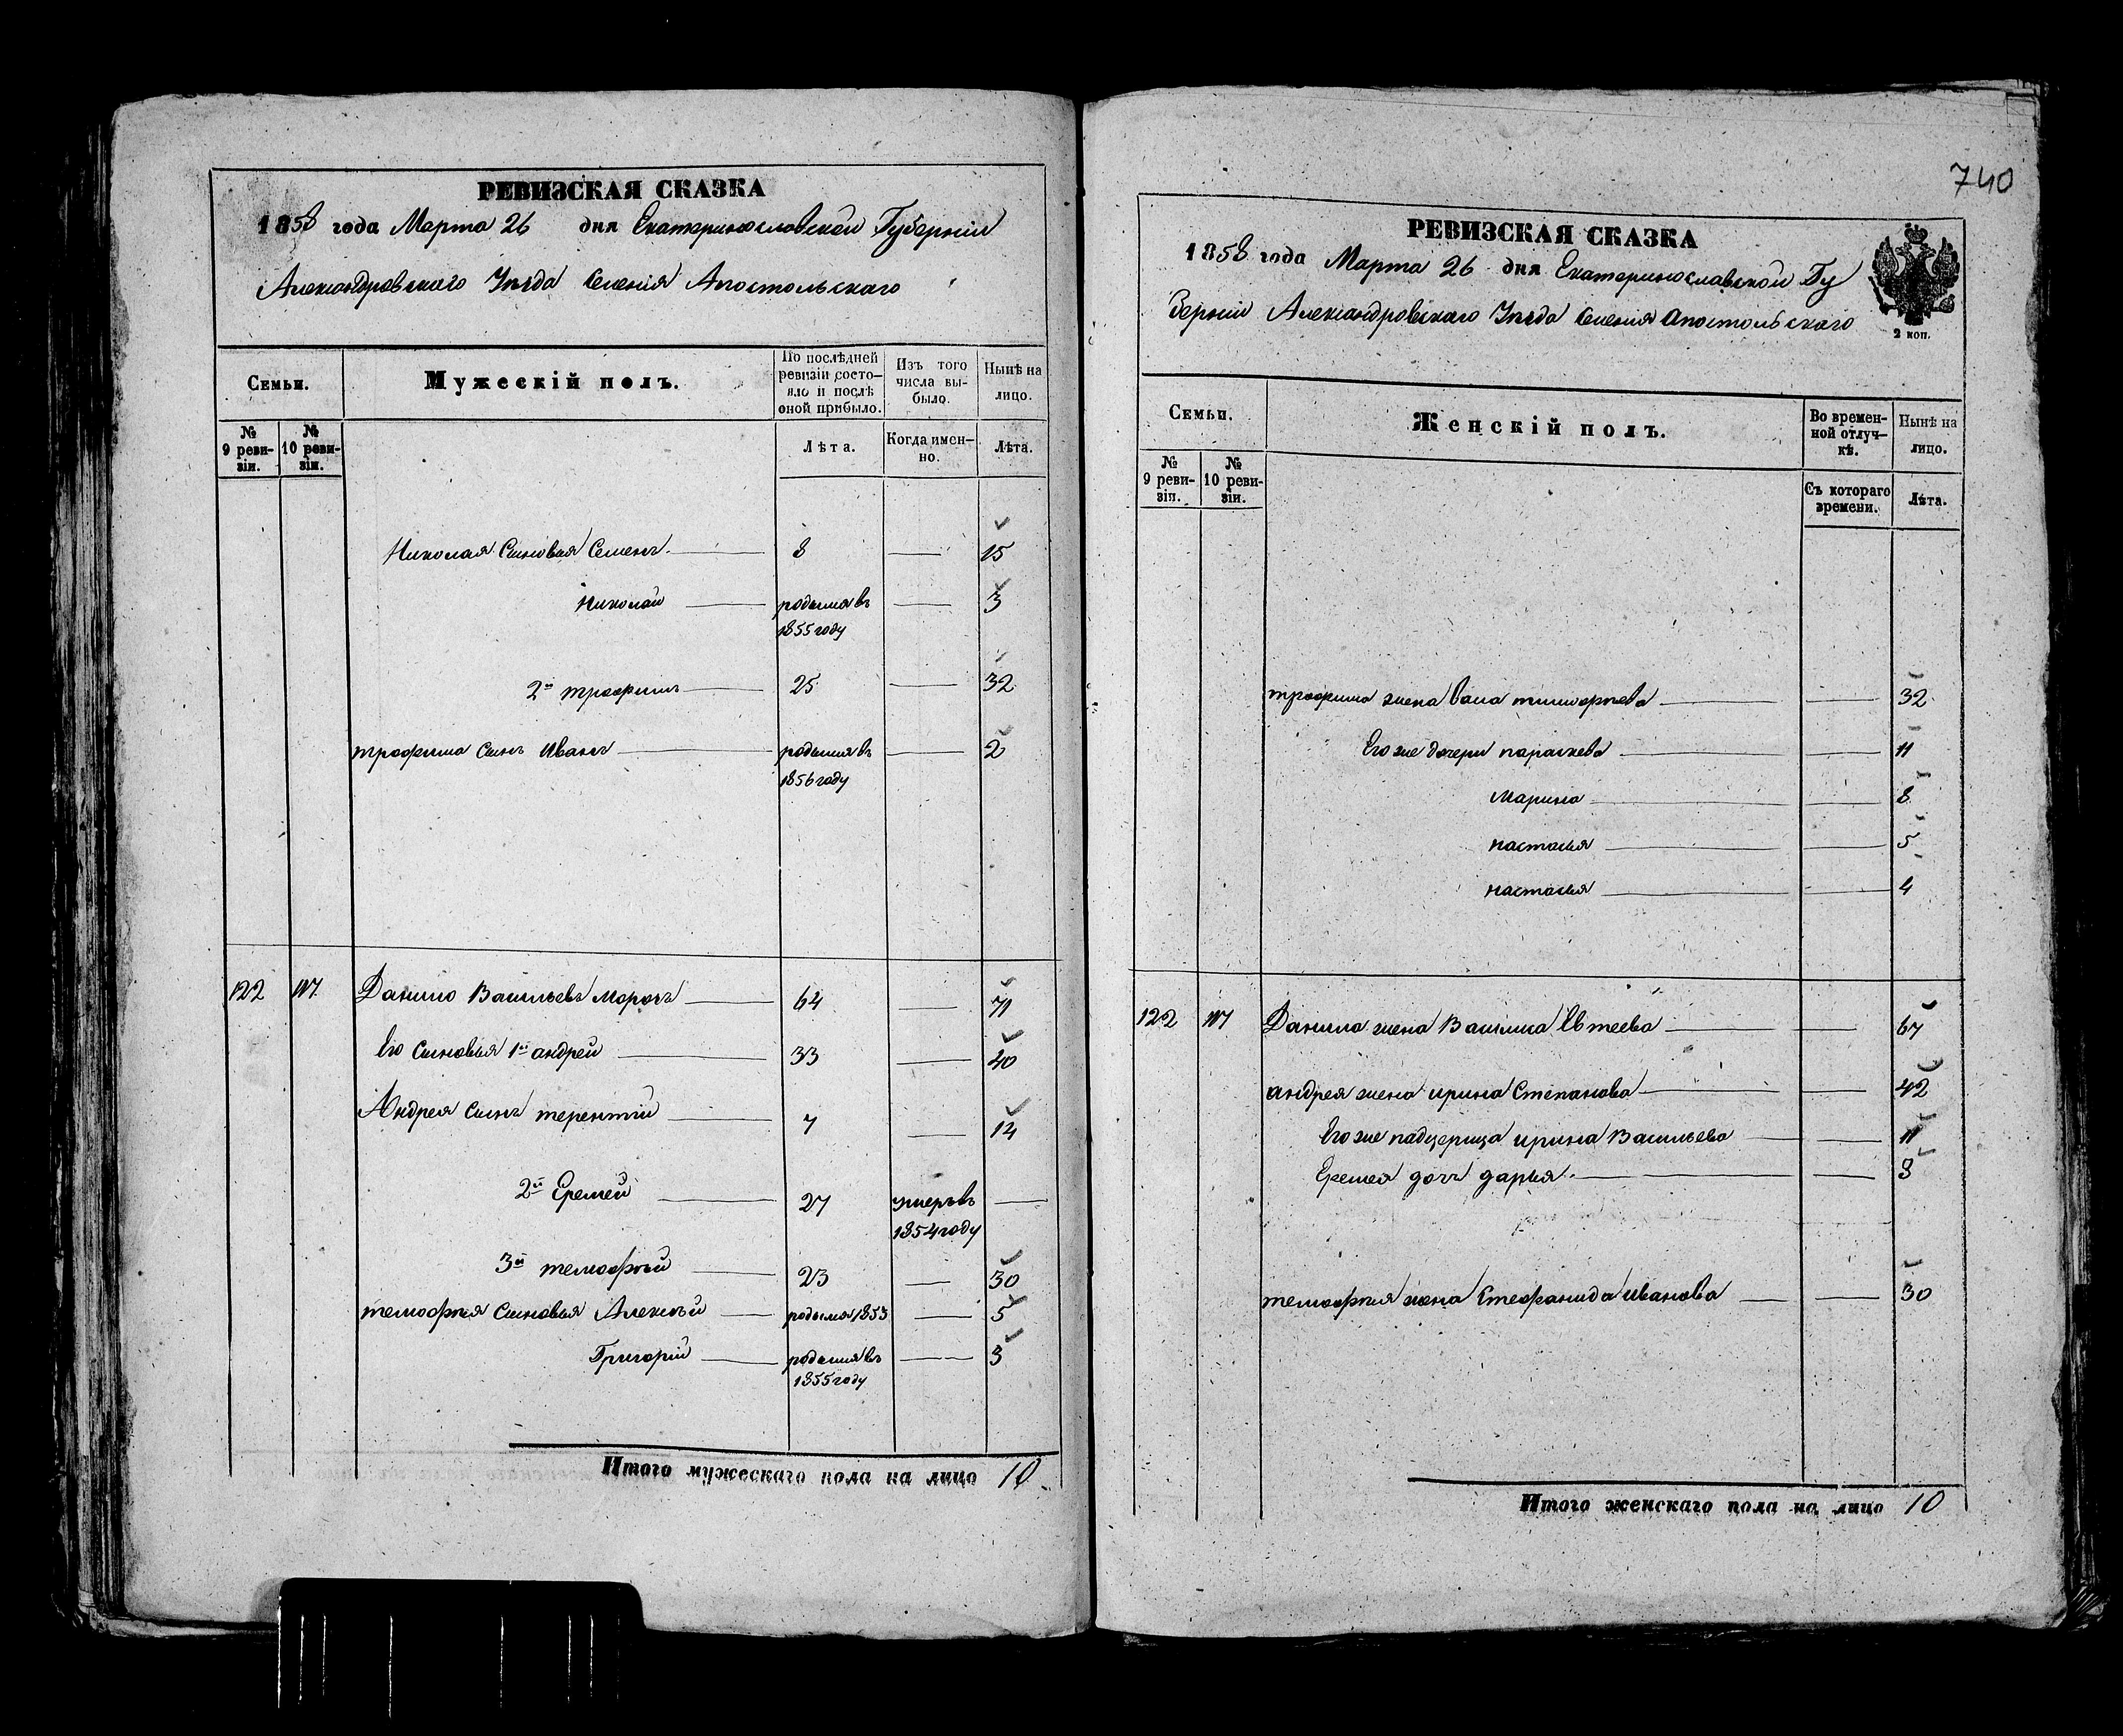 РЕВИЗСКАЯ СКАЗКА
1858 года Марта 26 дня Екатеринославской Губерніи
Александровского Уѣзда Селенія Апостольскаго
Семьи.
Мужескій полъ.
По послѣдней ревизіи состо-
яло и послѣ оной прибыло.
Изъ того числа вы-
было.
Нынѣ на лицо.
№ 9 реви-
зіи.
№ 10 реви-
зіи.
Лѣта.
Когда имен-
но.
Лѣта.
Николая Сыновья Семенъ 8 15
Николай родился въ 3
1855 году
2й трофимъ 25 32
трофима Сынъ Иванъ родился въ 2
1856 году
122 117 Данило Васильевъ Морозъ 64 71
Его Сыновья 1й андрей 33 40
Андрея Сынъ терентій 7 14
2й Еремей 27 умеръ въ
1854 году
3й темофѣй 23 30
темофѣя Сыновья Алексѣй родился 1853 5
Григорій родился въ 3
1855 году
Итого мужескаго пола на лицо 10
740
РЕВИЗСКАЯ СКАЗКА
1858 года Марта 26 дня Екатеринославской Гу
берніи Александровского Уѣзда Селенія Апостольскаго
2 коп.
Семьи.
Женскій полъ.
Во времен-
ной отлуч-
кѣ.
Нынѣ на лицо.
№ 9 реви-
зіи.
№ 10 реви-
зіи.
Съ котораго времени.
Лѣта.
трофима жена Васа тимофѣева 32
Его же дочери параскева 11
Марина 8
настасья 5
настасья 4
122 117 Данила жена Василиса Евтеева 67
андрея жена ирина Степанова 42
Его же падчерица ирина Васильева 11
Еремея дочь дарья 8
темофѣя жена Стефанида Иванова 30
Итого женскаго пола на лицо 10